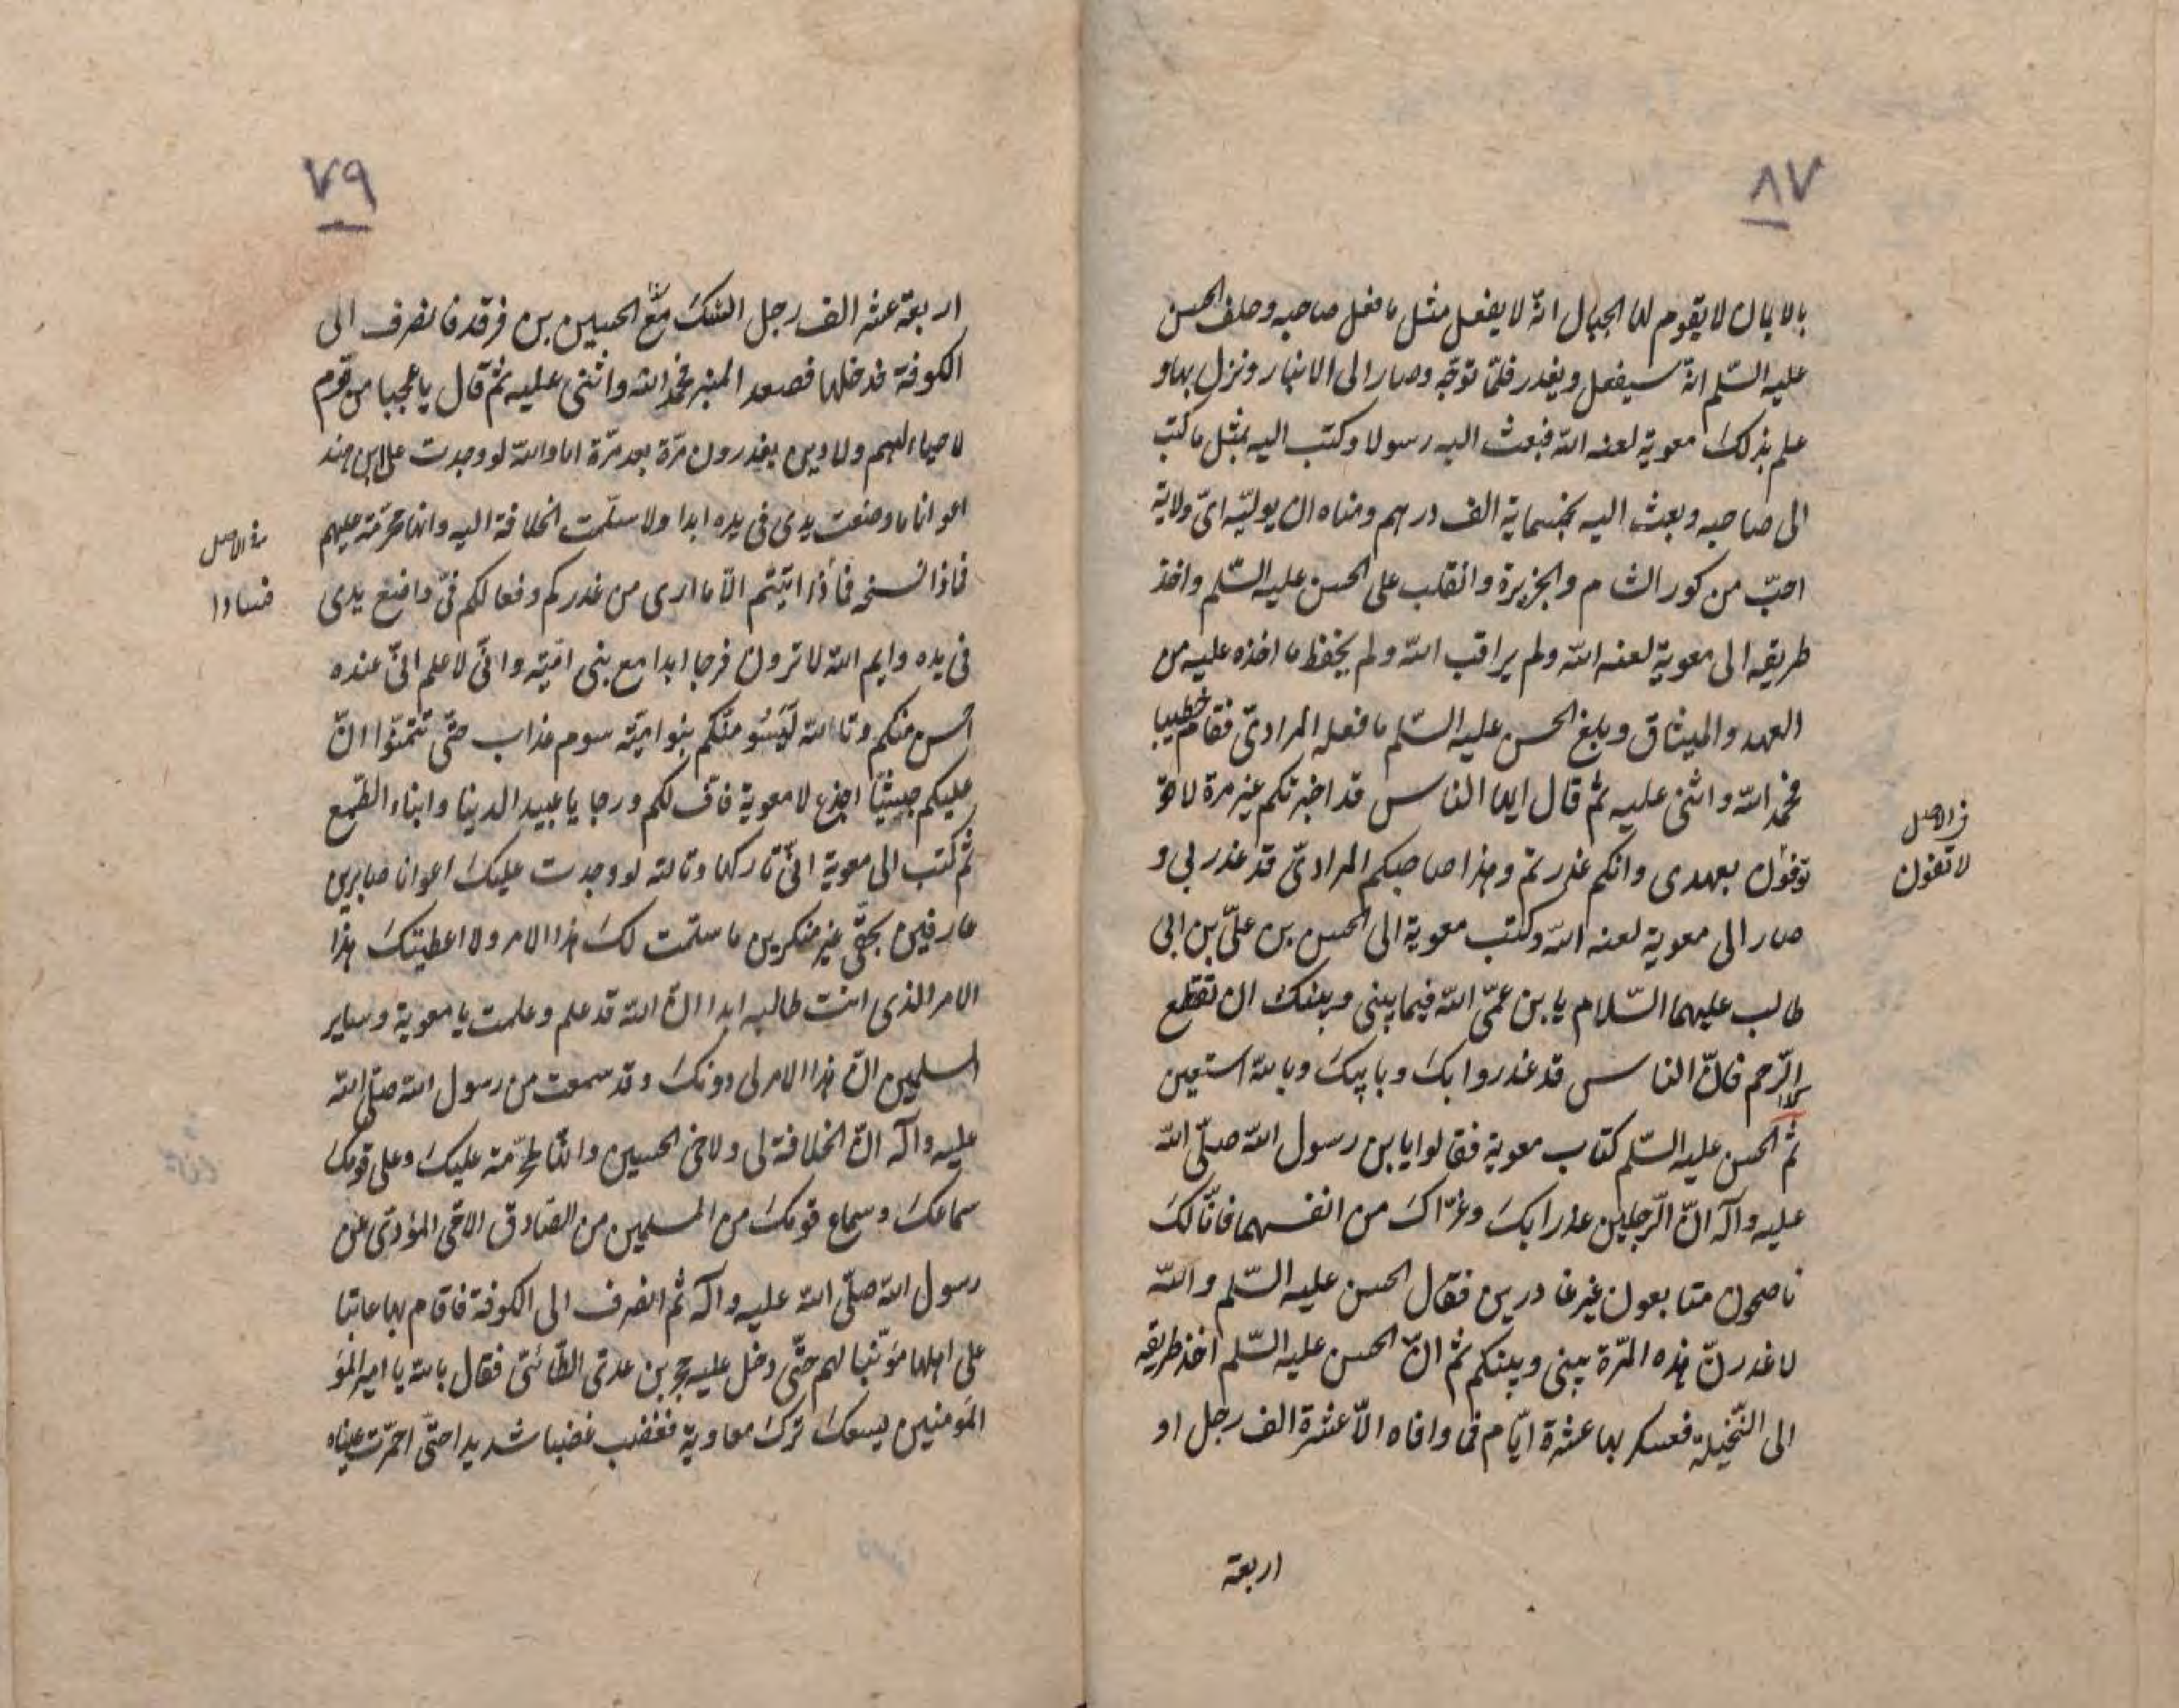 ٨٧
بالايمان لا يقوم لها الجبال انّه لا يفعل مثل ما فعل صاحبه وحلف الحسن
عليه السّلم انّه سيفعل ويغدر فلمّا توجّه وصار الى الانبار ونزل بها و
علم بذلك معوية لعنه اللّه فبعث اليه رسولا وكتب اليه بمثل ما كتب
الى صاحبه وبعث اليه بخمسماية الف درهم ومناه ان يوليّه اىّ ولاية
احبّ من كور الشام والجزيرة وانقلب على الحسن عليه السّلم واخذ
طريقه الى معوية لعنه اللّه ولم يراقب اللّه ولم يحفظ ما اخذه عليه من
العهد والميثاق وبلغ الحسن عليه السّلم ما فعله المرادىّ فقام خطيبا
فحمد اللّه واثنى عليه ثم قال ايها الناس قد اخبرتكم غير مرة لا تو
توفون بعهدى وانكم غدرتم وهذا صاحبكم المرادىّ قد غدر بى و
صار الى معوية لعنه اللّه وكتب معوية الى الحسن بن علىّ بن ابى
طالب عليهما السّلام يابن عمّى اللّه فيما بينى وبينك ان تقطع
الرّحم فانّ الناس قد غدروا بك وبابيك وباللّه استعين
ثمّ الحسن عليه السّلم كتاب معوية فقالوا يابن رسول اللّه صلّى اللّه
عليه وآله انّ الرّجلين غدرا بك وغرّاك من انفسهما فانّا لك
ناصحون متابعون غير غادرين فقال الحسن عليه السّلم واللّه
لاغدرنّ هذه المرّة بينى وبينكم ثم انّ الحسن عليه السّلم اخذ طريقه
الى النّخيلة فعسكر بها عشرة ايّام فما وافاه الّا عشرة الف رجل او
اربعة
فى الاصل
لا تفون
٧٩
اربعة عشر الف رجل الحسين بن فرقد فانصرف الى
الكوفة فدخلها فصعد المنبر فحمد اللّه واثنى عليه ثم قال يا عجبا من قوم
لا حياء لهم ولا دين يغدرون مرّة بعد مرّة اما واللّه لو وجدت على ابن هند
اعوانا ما وضعت يدى فى يده ابدا ولا سلّمت الخلافة اليه وانها محرّمة عليهم
فاذا نسخه فاذا ابيتم الّا ما ارى من غدركم وفعالكم فىّ واضع يدى
فى يده وايم اللّه لا ترون فرجا ابدا مع بنى اميّه وانّى لاعلم انّى عنده
احسن منكم وتاللّه ليسومنّكم بنو اميّه سوم عذاب حتّى تتمنّوا انّ
عليكم جيشا اجذع لا معوية فاف لكم وترحا يا عبيد الدنيا وابناء الطّمع
ثم كتب الى معوية انّى تاركها وتاللّه لو وجدت عليك اعوانا صابرين
عارفين بحقّى غير منكرين ما سلّمت لك هذا الامر ولا اعطيتك هذا
الامر الذى انت طالبه ابدا انّ اللّه قد علم وعلمت يا معوية وساير
المسلمين انّ هذا الامر لى دونك وقد سمعت من رسول اللّه صلّى اللّه
عليه وآله انّ الخلافة لى ولاخى الحسين وانّها محرّمة عليك وعلى قومك
سماعك وسماع قومك من المسلمين من الصّادق الاخى المؤدّى عن
رسول اللّه صلّى اللّه عليه وآله ثم انصرف الى الكوفة فاقام بها عاتبا
على اهلها مؤنّبا لهم حتّى دخل عليه حجر بن عدىّ الطّائىّ فقال باللّه يا امير المؤ
المؤمنين يسعك ترك معاوية فغضب غضبا شديدا حتّى احمرّت عيناه
فى الاصل
فساذا